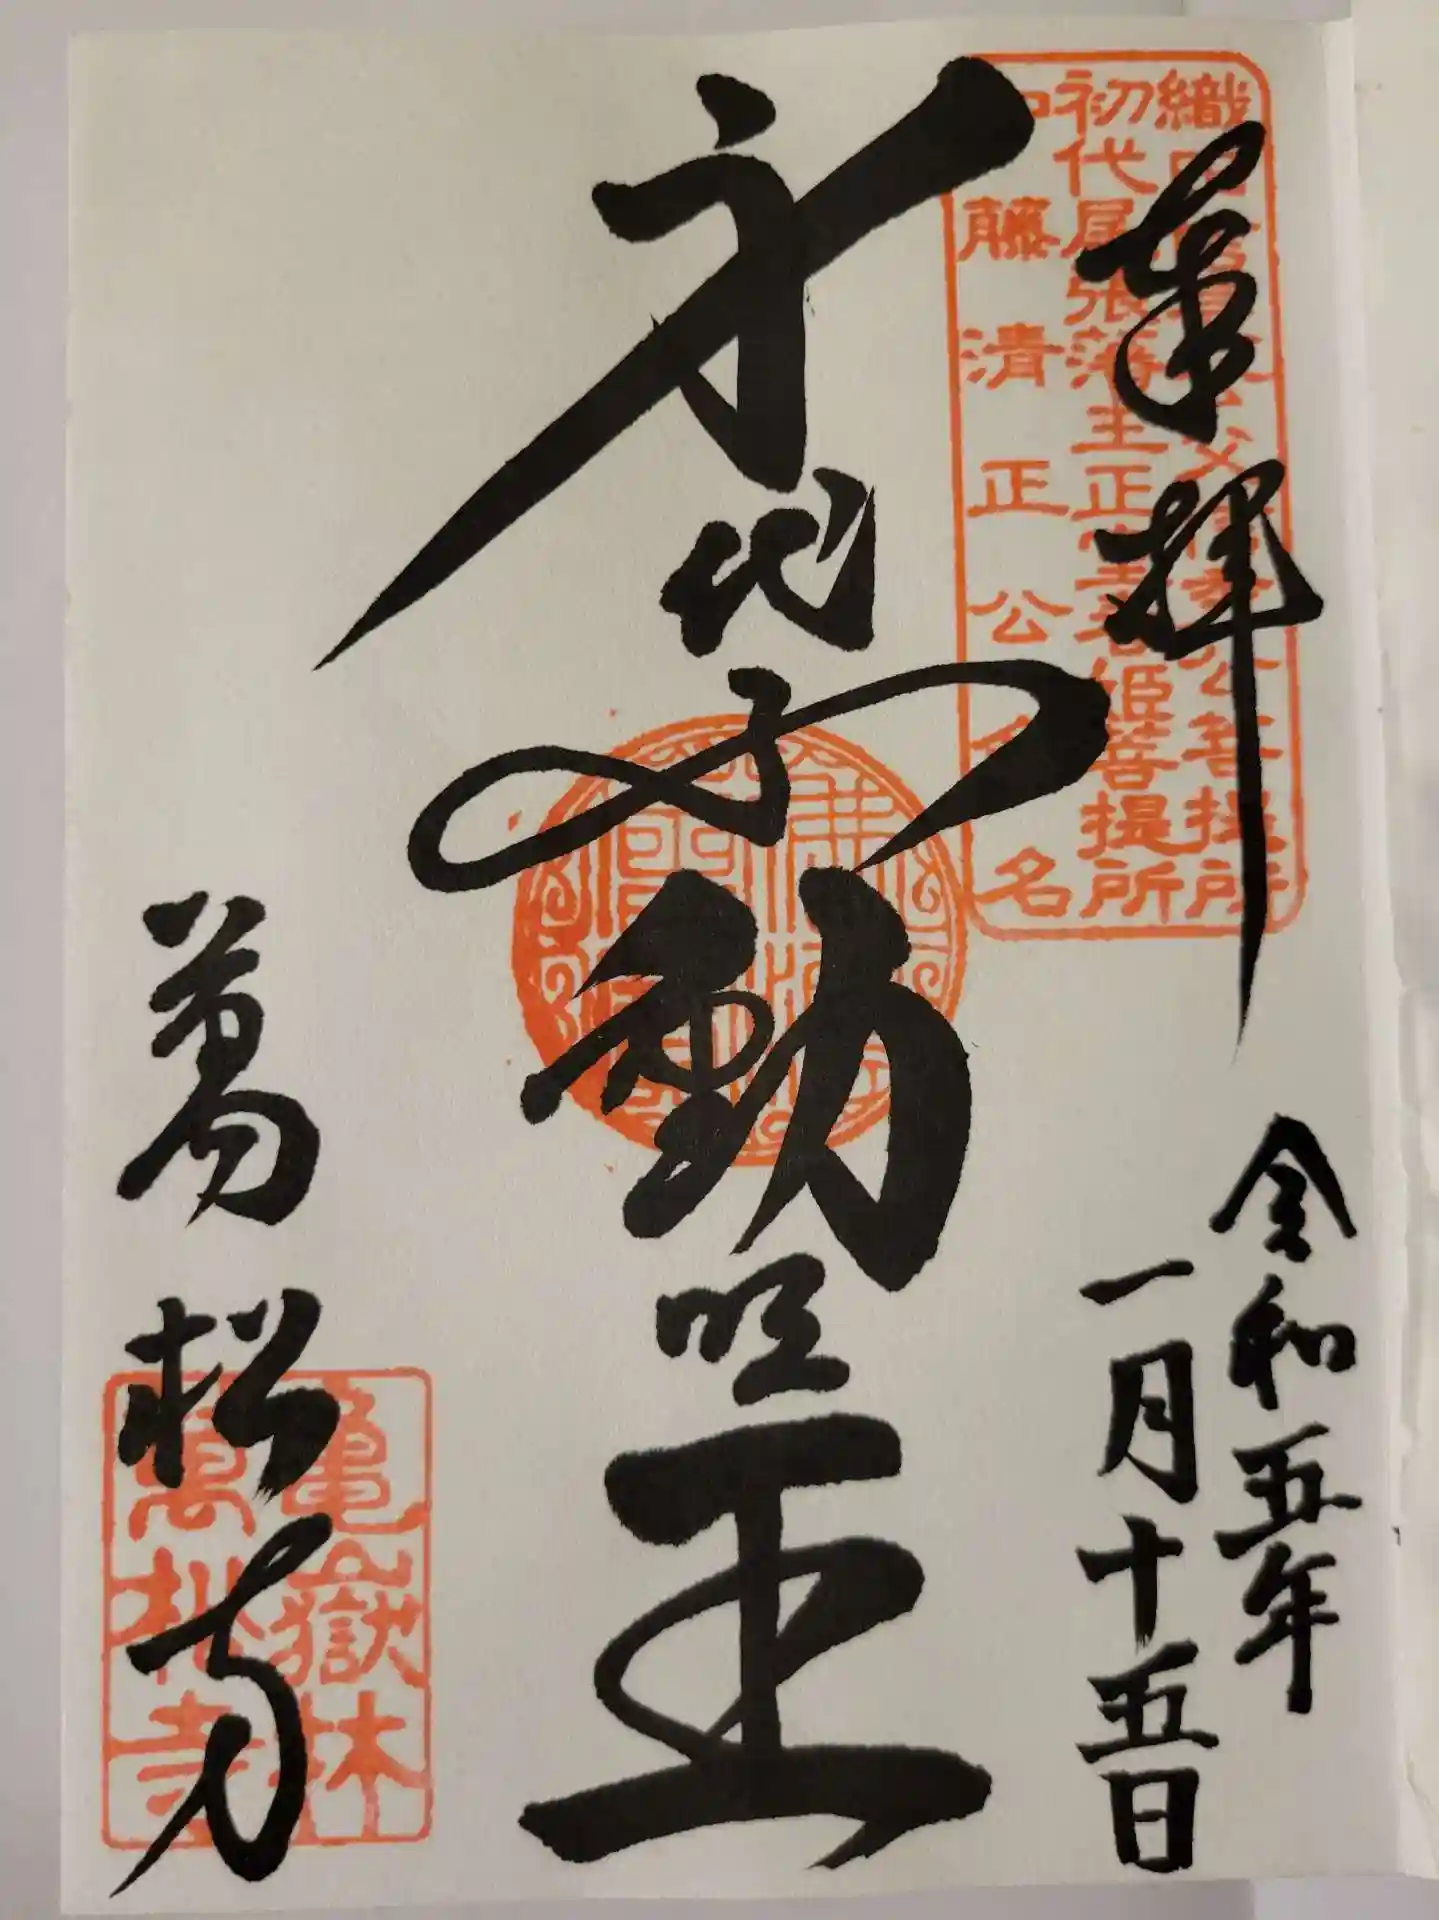 奉拝
令和五年
一月十五日
織田信長公父信秀公菩提所
初代尾張藩主正室春姫菩提所
加藤清正公命名
身代不動明王
萬松寺
亀嶽林
萬松寺